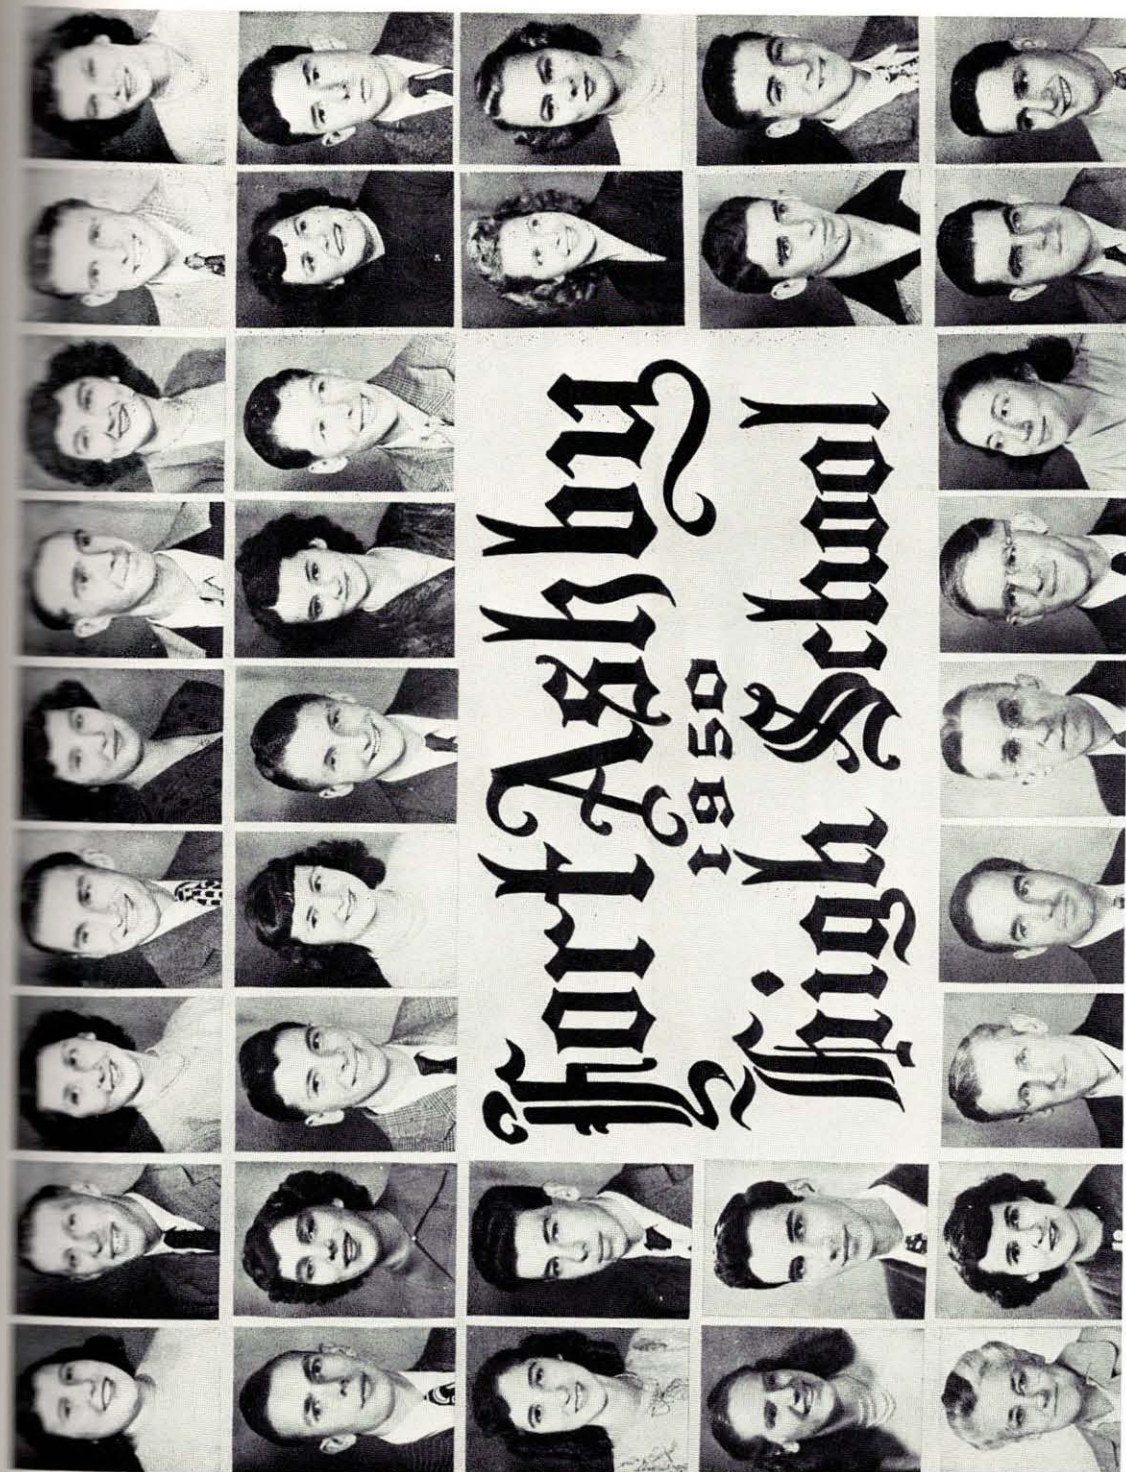 Fort Ashby
1950
High School